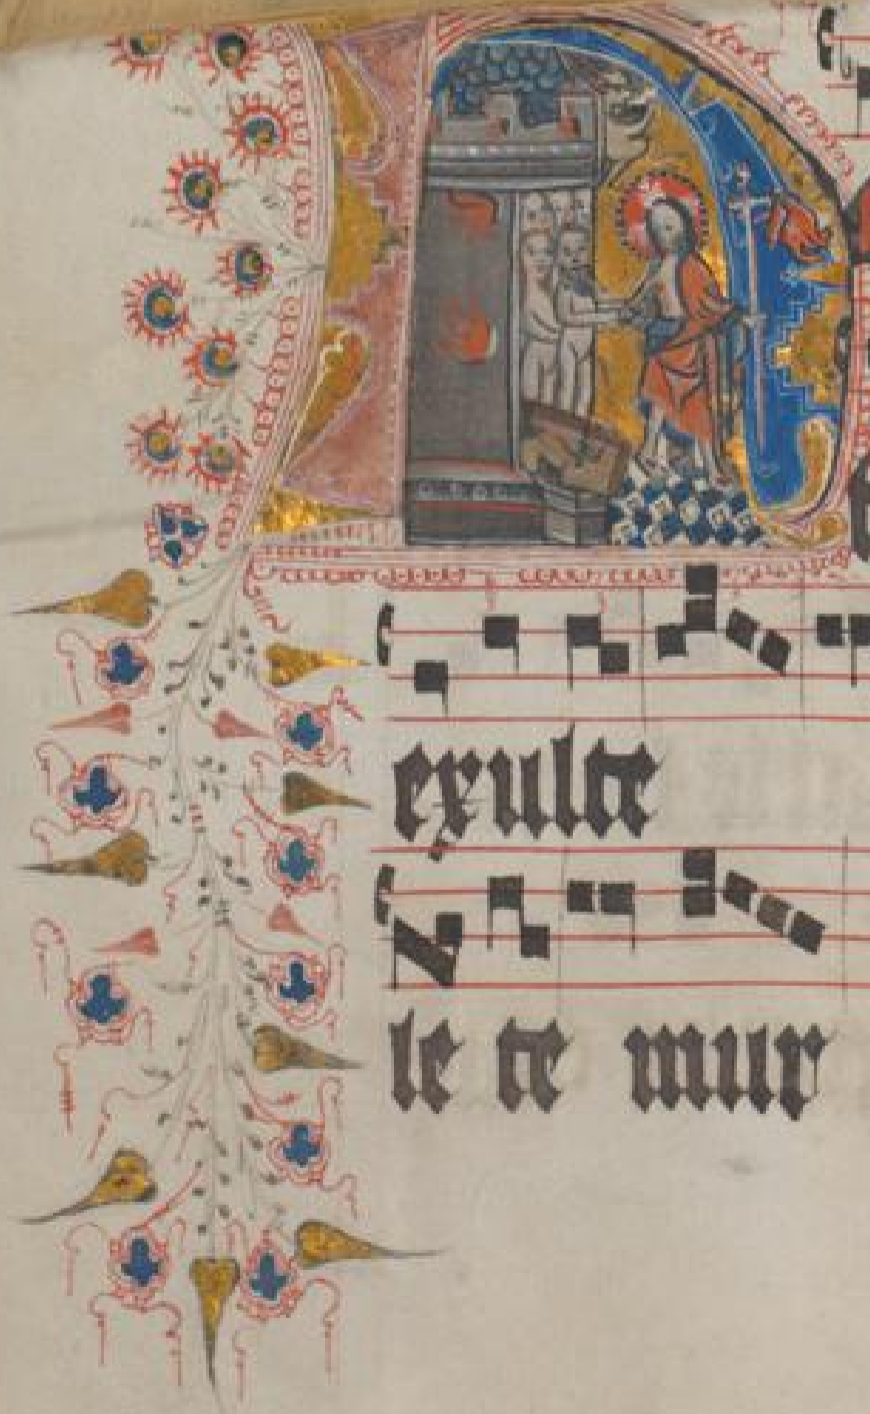 exulte
le te mur